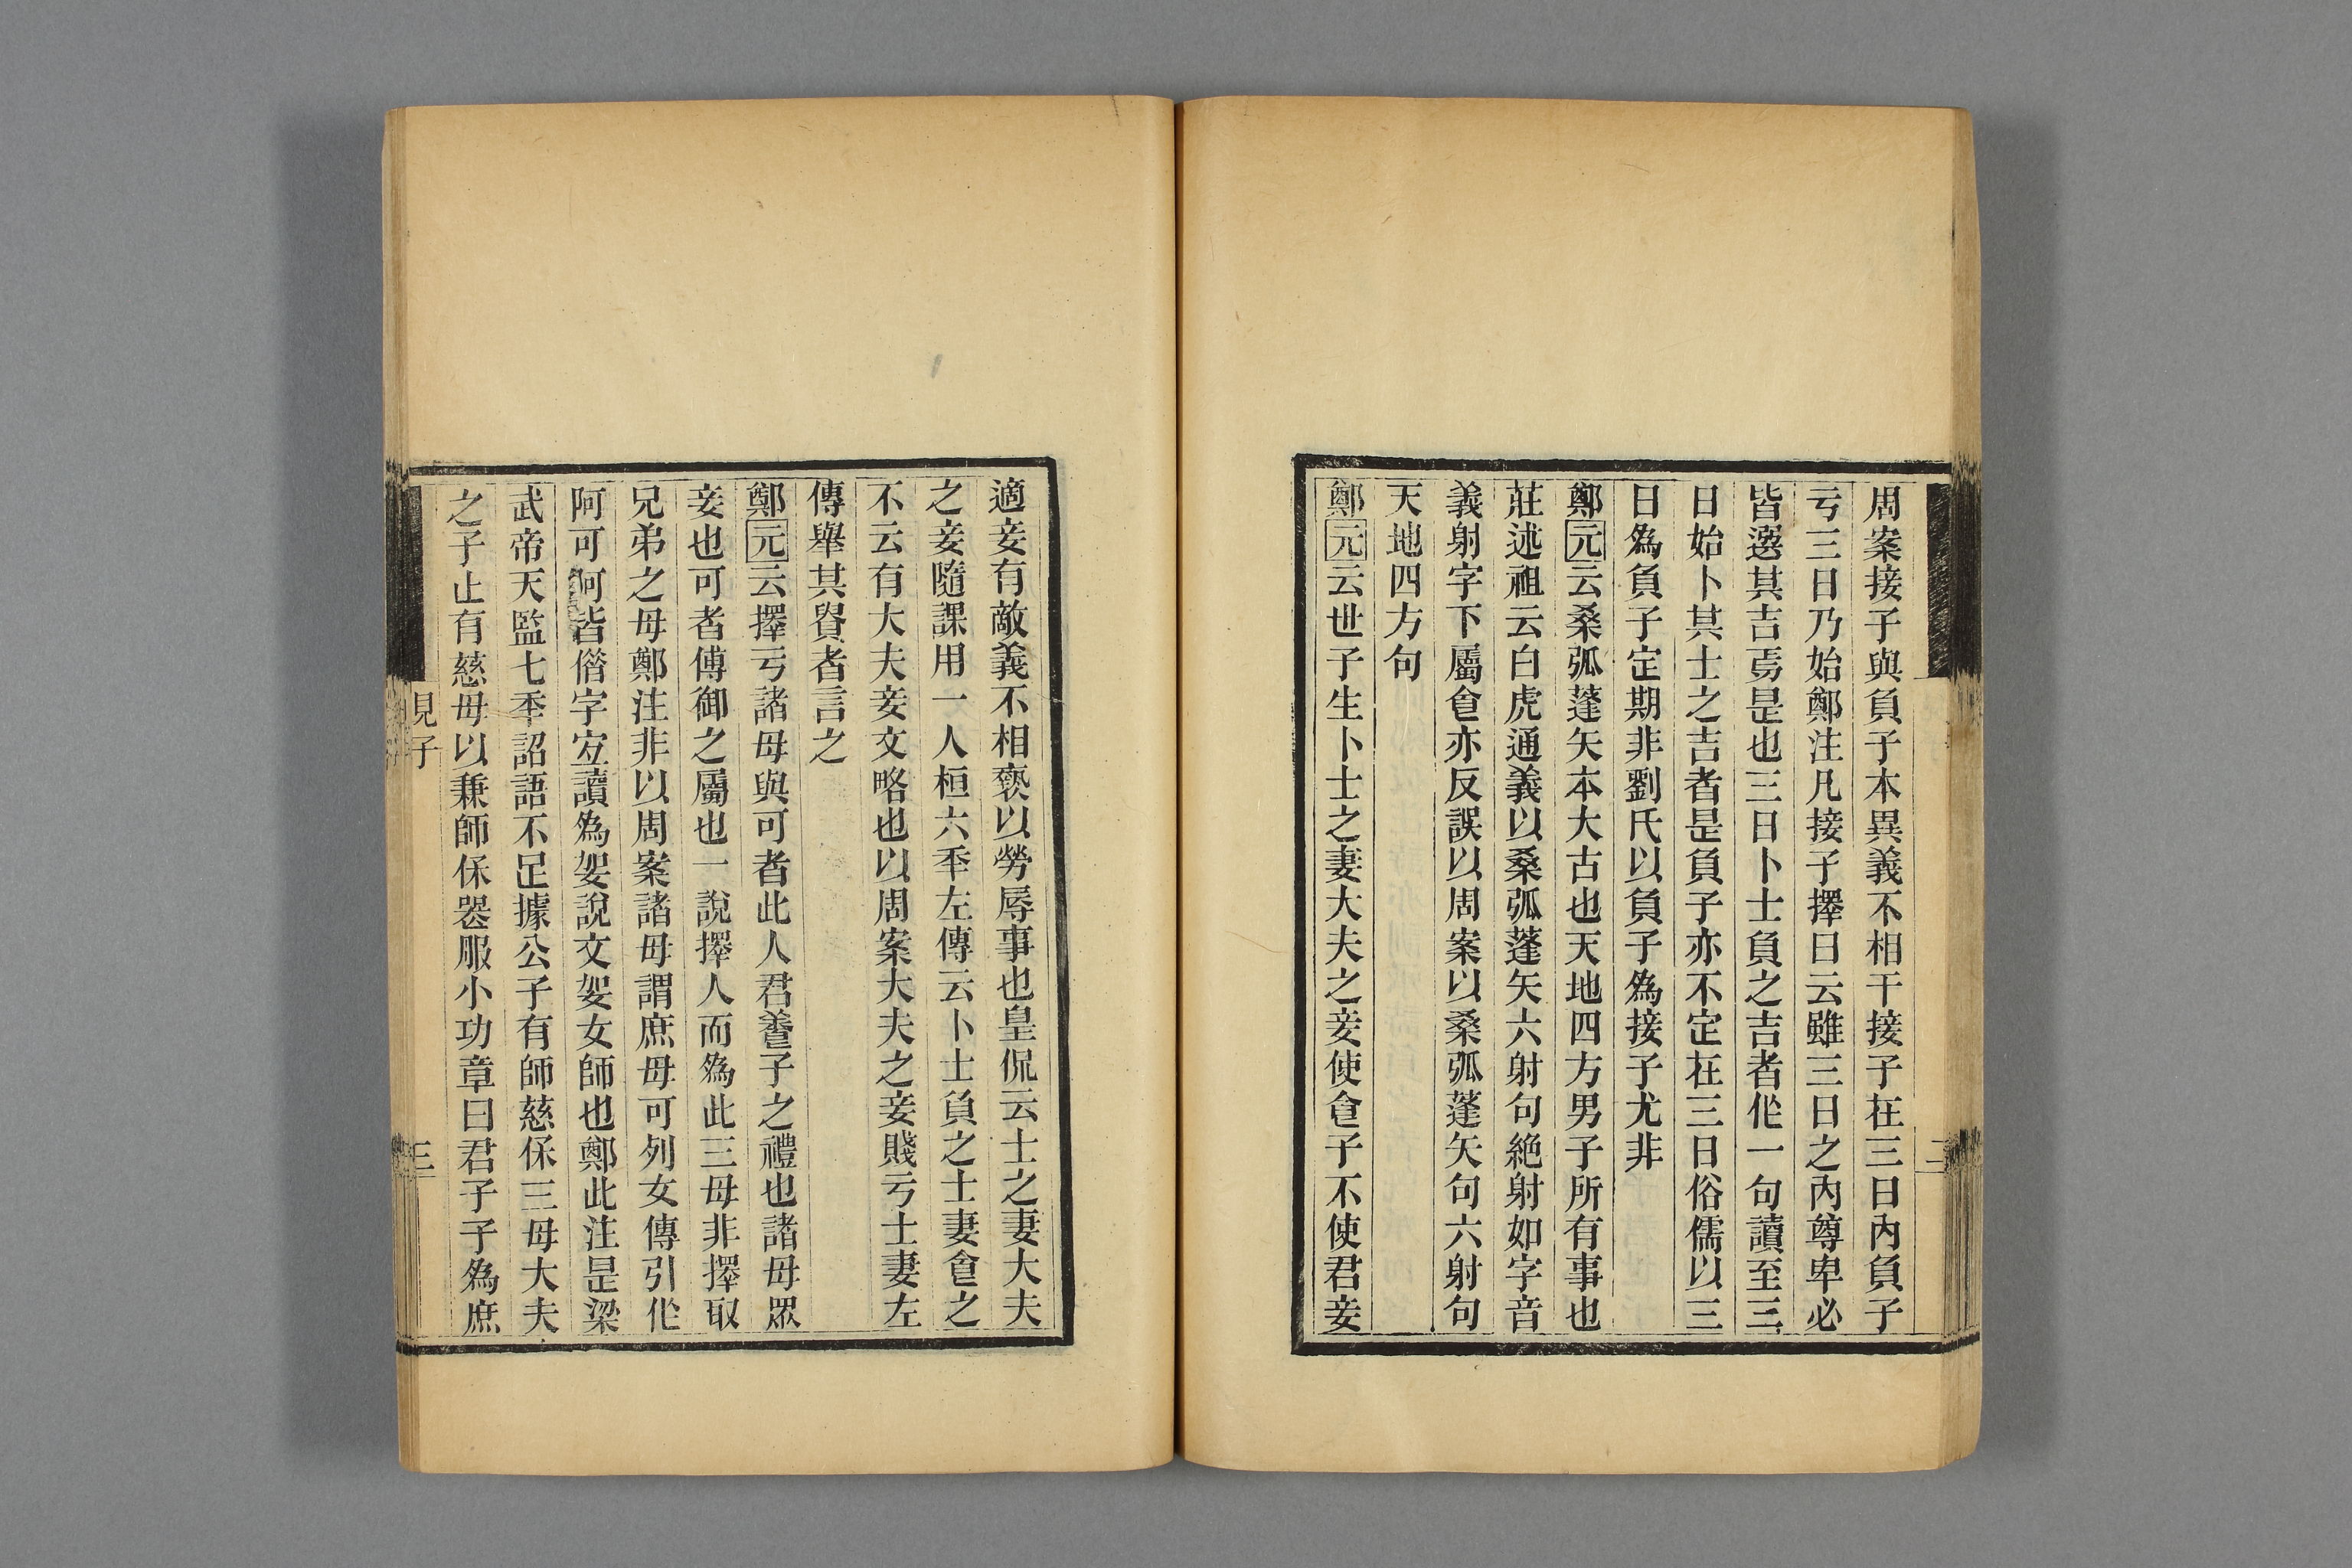 周案接子與負子本異義不相干接子在三日內負子
亏三日乃始鄭注凡接子擇日云雖三日之內尊卑必
皆選其吉焉是也三日卜士負之吉者作一句讀至三
日始卜其士之吉者是負子亦不定在三日俗儒以三
日為負子定期非劉氏以負子為接子尤非
鄭元云桑弧蓬矢本大古也天地四方男子所有事也
莊述祖云白虎通義以桑弧蓬矢六射句絕射如字音
義射字下屬食亦反誤以周案以桑弧蓬矢句六射句
天地四方句
鄭元云世子生卜士之妻大夫之妾使食子不使君妾
適妾有敵義不相褻以勞辱事也皇侃云士之妻大夫
之妾隨課用一人桓六秊左傳云卜士負之士妻食之
不云有大夫妾文略也以周案大夫之妾賤亏士妻左
傳舉其貴者言之
鄭元云擇亏諸母與可者此人君養子之禮也諸母眾
妾也可者傅御之屬也一說擇人而為此三母非擇取
兄弟之母鄭注非以周案諸母謂庶母可列女傳引作
阿可阿皆僭字宜讀為娿說文娿女師也鄭此注是梁
武帝天監七秊詔語不足據公子有師慈保三母大夫
之子止有慈母以兼師保喪服小功章曰君子子為庶
見子
二
三